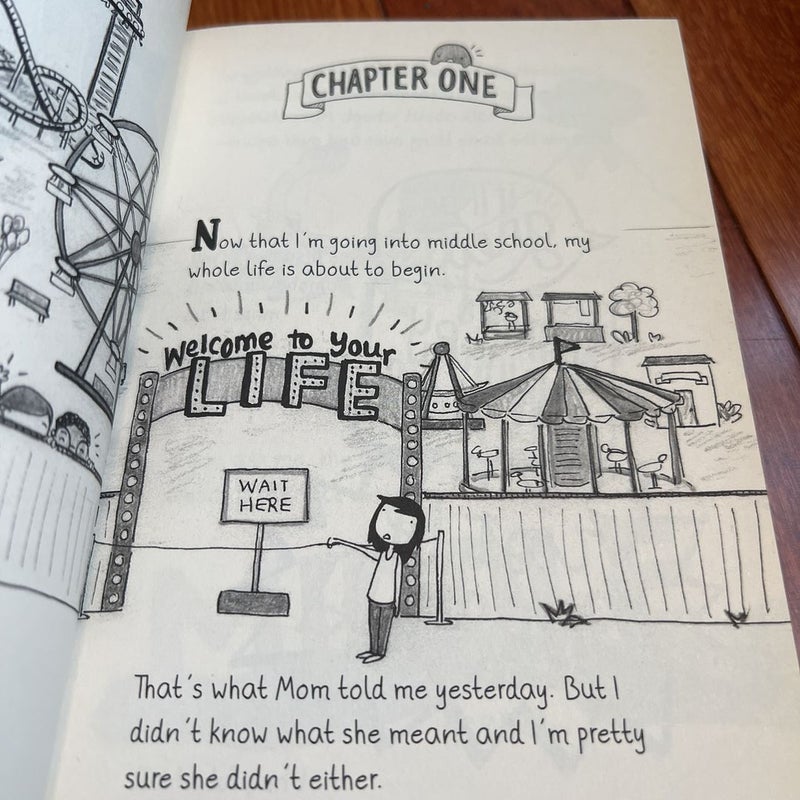 CHAPTER ONE
Now that I'm going into middle school, my
whole life is about to begin.
Welcome to your
LIFE
WAIT
HERE
That's what Mom told me yesterday. But I
didn't know what she meant and I'm pretty
sure she didn't either.